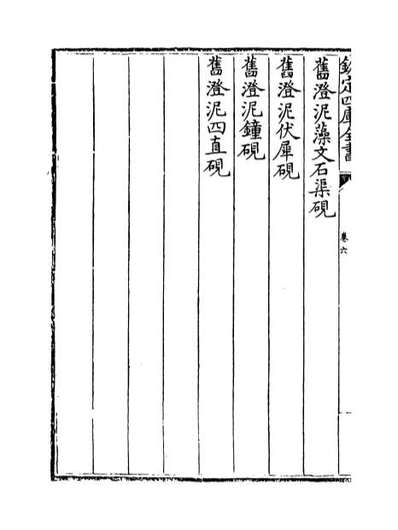 欽定四庫全書
卷六
舊澄泥藻文石渠硯
舊澄泥伏犀硯
舊澄泥鐘硯
舊澄泥四直硯